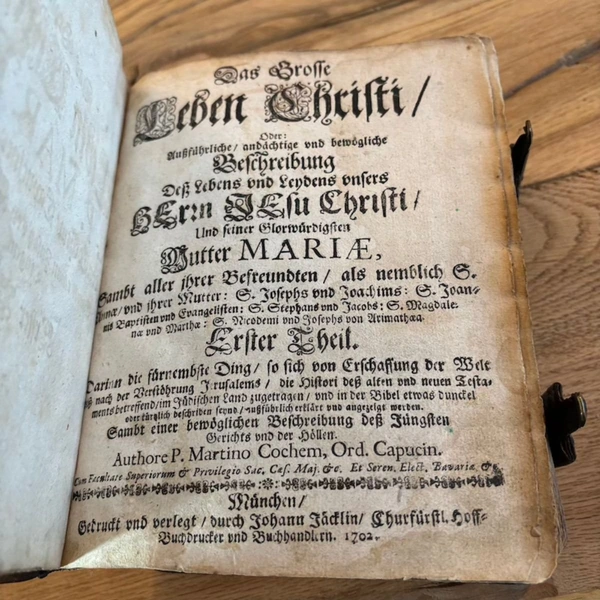 Das Grosse
Leben Christi/
Oder:
Außführliche/ andächtige vnd bewögliche
Beschreibung
Deß Lebens vnd Leydens vnsers
HErrn JEsu Christi/
Und seiner Glorwürdigsten
Mutter MARIÆ,
Sambt aller jhrer Befreundten/ als nemblich S.
Annæ/ vnd jhrer Mutter: S. Josephs vnd Joachims: S. Joan-
nis Baptisten vnd Evangelisten: S. Stephans vnd Jacobs: S. Magdale-
næ vnd Marthæ: S. Nicodemi vnd Josephs von Arimathæa.
Erster Theil.
Darinn die fürnembste Ding/ so sich von Erschaffung der Welt
biß nach der Verstöhrung Jerusalems/ die Histori deß alten vnd neuen Testa-
ments betreffend/ im Jüdischen Land zugetragen/ vnd in der Bibel etwas dunckel
oder kürtzlich beschriben seynd/ außführlich erklärt vnd angezeigt werden.
Sambt einer bewöglichen Beschreibung deß Jüngsten
Gerichts vnd der Höllen.
Authore P. Martino Cochem, Ord. Capucin.
Cum Facultate Superiorum & Privilegio Sac. Cæs. Maj. &c. Et Seren. Elect. Bavariæ &c.
München/
Gedruckt vnd verlegt/ durch Johann Jäcklin/ Churfürstl. Hoff-
Buchdrucker vnd Buchhandlern. 1702.